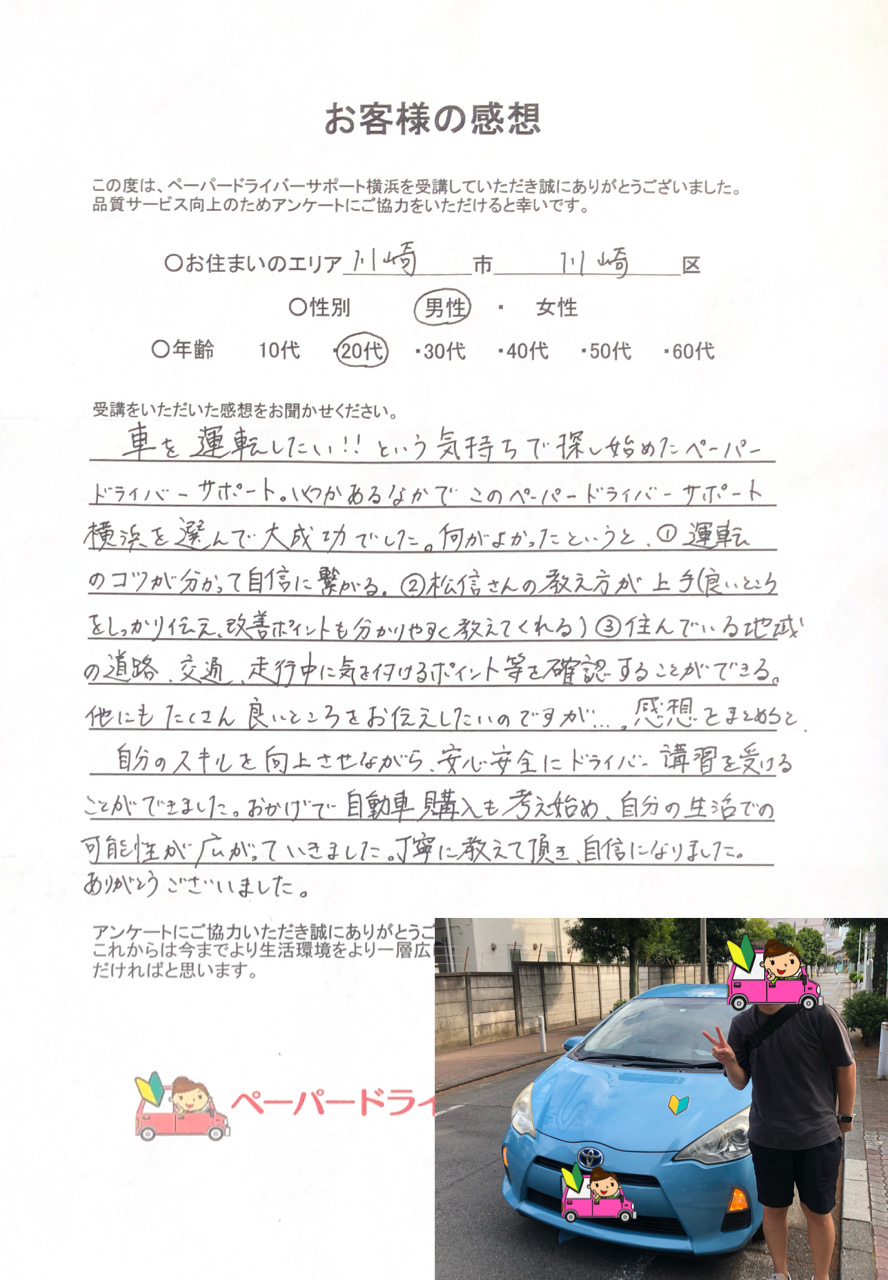 お客様の感想
この度は、ペーパードライバーサポート横浜を受講していただき誠にありがとうございました。
品質サービス向上のためアンケートにご協力をいただけると幸いです。
〇お住まいのエリア 川崎 市 川崎 区
〇性別 男性 ・ 女性
〇年齢 10代 ・20代 ・30代 ・40代 ・50代 ・60代
受講をいただいた感想をお聞かせください。
車を運転したい!!という気持ちで探し始めたペーパー
ドライバーサポート。いくつかあるなかでこのペーパードライバーサポート
横浜を選んで大成功でした。何がよかったというと、①運転
のコツが分かって自信に繋がる。②松信さんの教え方が上手(良いところ
をしっかり伝え、改善ポイントも分かりやすく教えてくれる)③住んでいる地域
の道路、交通、走行中に気を付けるポイント等を確認することができる。
他にもたくさん良いところをお伝えしたいのですが...。感想をまとめると、
自分のスキルを向上させながら、安心安全にドライバー講習を受ける
ことができました。おかげで自動車購入も考え始め、自分の生活での
可能性が広がっていきました。丁寧に教えて頂き、自信になりました。
ありがとうございました。
アンケートにご協力いただき誠にありがとうご
これからは今までより生活環境をより一層広
だければと思います。
ペーパードライ